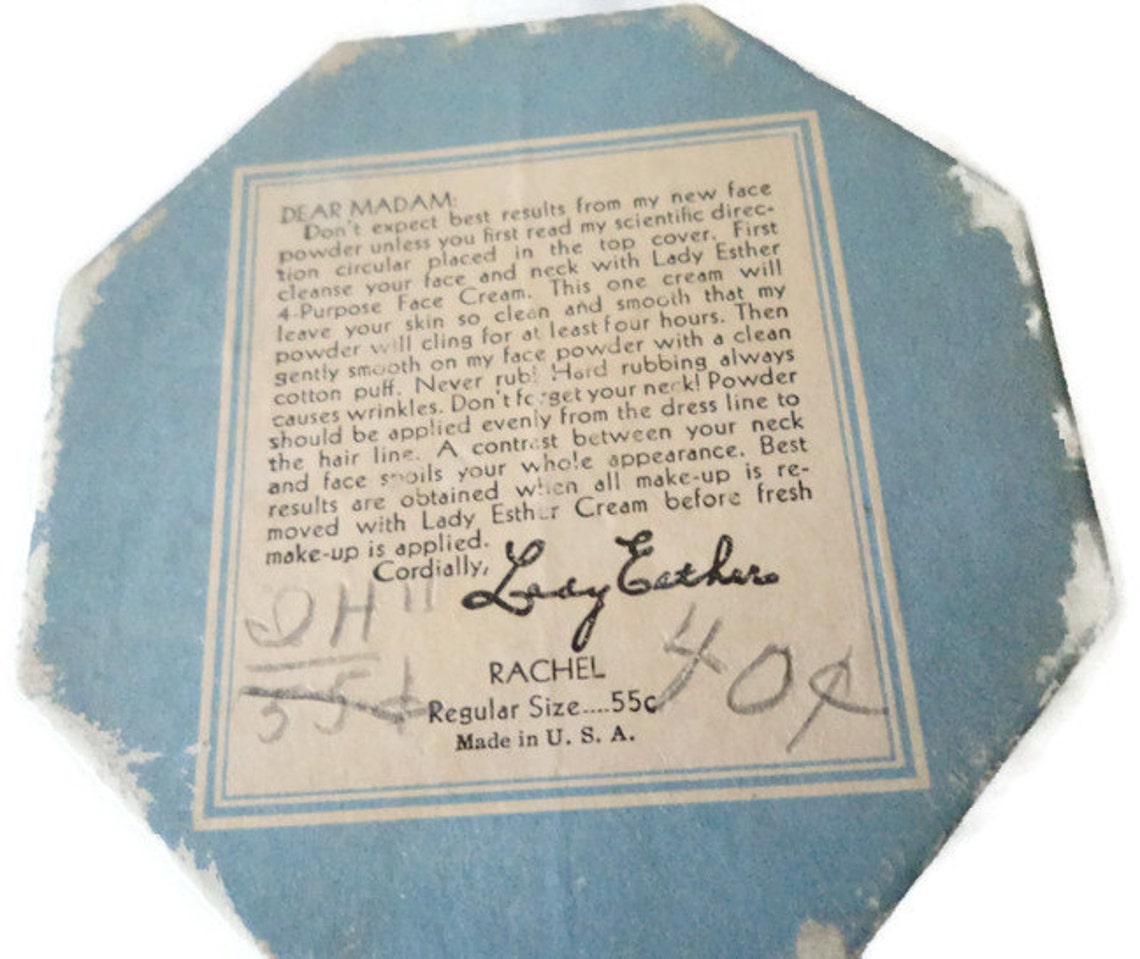 DEAR MADAM:
Don't expect best results from my new face
powder unless you first read my scientific direc-
tion circular placed in the top cover. First
cleanse your face and neck with Lady Esther
4-Purpose Face Cream. This one cream will
leave your skin so clean and smooth that my
powder will cling for at least four hours. Then
gently smooth on my face powder with a clean
cotton puff. Never rub! Hard rubbing always
causes wrinkles. Don't forget your neck! Powder
should be applied evenly from the dress line to
the hair line. A contrast between your neck
and face spoils your whole appearance. Best
results are obtained when all make-up is re-
moved with Lady Esther Cream before fresh
make-up is applied.
Cordially, Lady Esther
RACHEL
Regular Size....55c
Made in U. S. A.
55¢
40¢